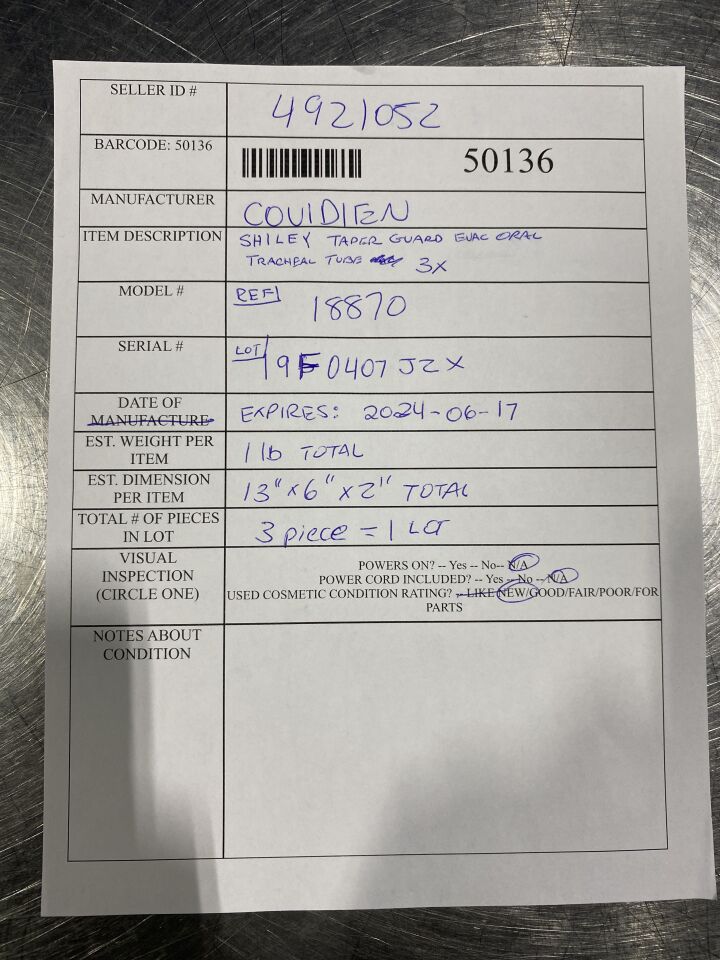 SELLER ID #
4921052
BARCODE: 50136
50136
MANUFACTURER
COVIDIEN
ITEM DESCRIPTION
SHILEY TAPER GUARD EVAC ORAL
TRACHEAL TUBE 3X
MODEL #
REF
18870
SERIAL #
LOT
19F0407JZX
DATE OF
MANUFACTURE
EXPIRES: 2024-06-17
EST. WEIGHT PER
ITEM
1 lb TOTAL
EST. DIMENSION
PER ITEM
13" x 6" x 2" TOTAL
TOTAL # OF PIECES
IN LOT
3 piece = 1 LOT
VISUAL
INSPECTION
(CIRCLE ONE)
POWERS ON? -- Yes -- No-- N/A
POWER CORD INCLUDED? -- Yes -- No -- N/A
USED COSMETIC CONDITION RATING? -- LIKE NEW/GOOD/FAIR/POOR/FOR
PARTS
NOTES ABOUT
CONDITION